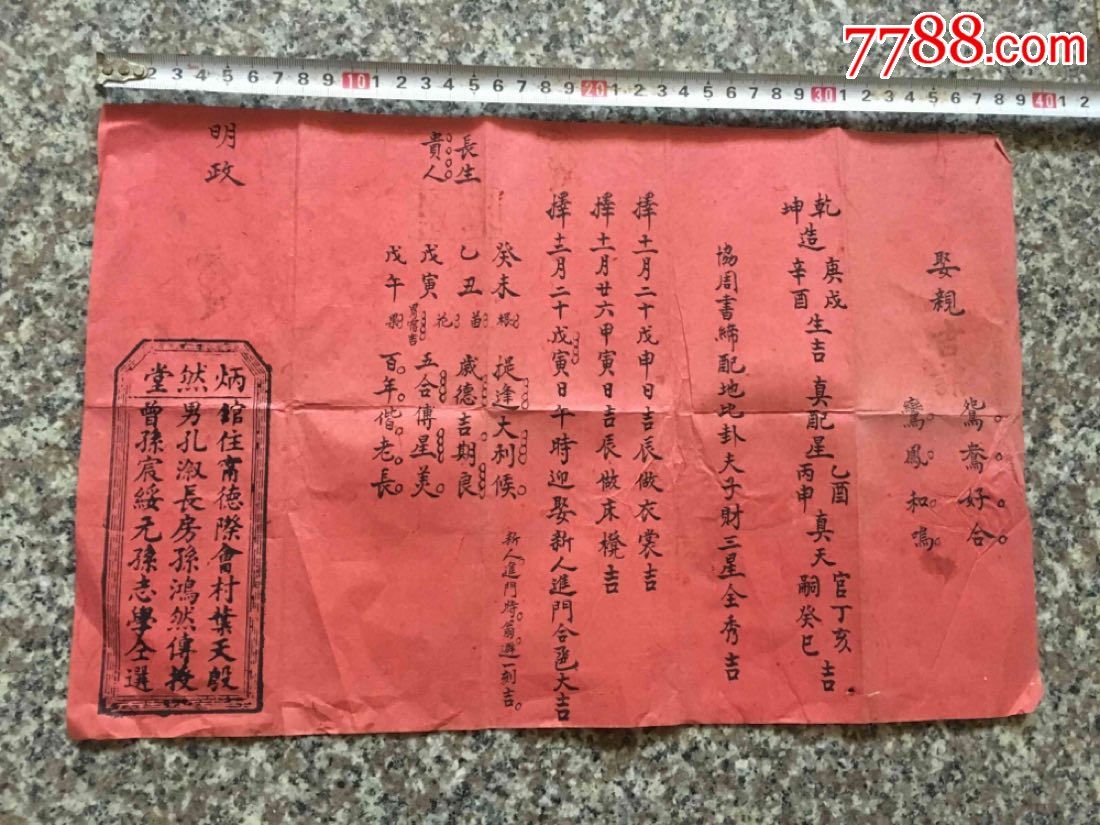 7788.com
娶親吉課
鴛鴦好合
鸞鳳和鳴
乾造庚戌生吉真配星乙酉真天官丁亥吉
坤造辛酉生吉真配星丙申真天嗣癸巳吉
協周書締配地比卦夫子財三星全秀吉
擇十一月二十戊申日吉辰做衣裳吉
擇十一月廿六甲寅日吉辰做床櫈吉
擇十二月二十戊寅日午時迎娶新人進門合卺大吉
新人進門時翁避一刻吉
長生
貴人
癸未根提逢大利候
乙丑苗歲德吉期良
戊寅花五合傳星美
戊午果百年偕老長
明政
炳然堂
館住甯德際會村葉天殷
男孔淑長房孫鴻然傳授
曾孫宸綏元孫志學仝選
2 3 4 5 6 7 8 9 10 1 2 3 4 5 6 7 8 9 20 1 2 3 4 5 6 7 8 9 30 1 2 3 4 5 6 7 8 9 40 1 2